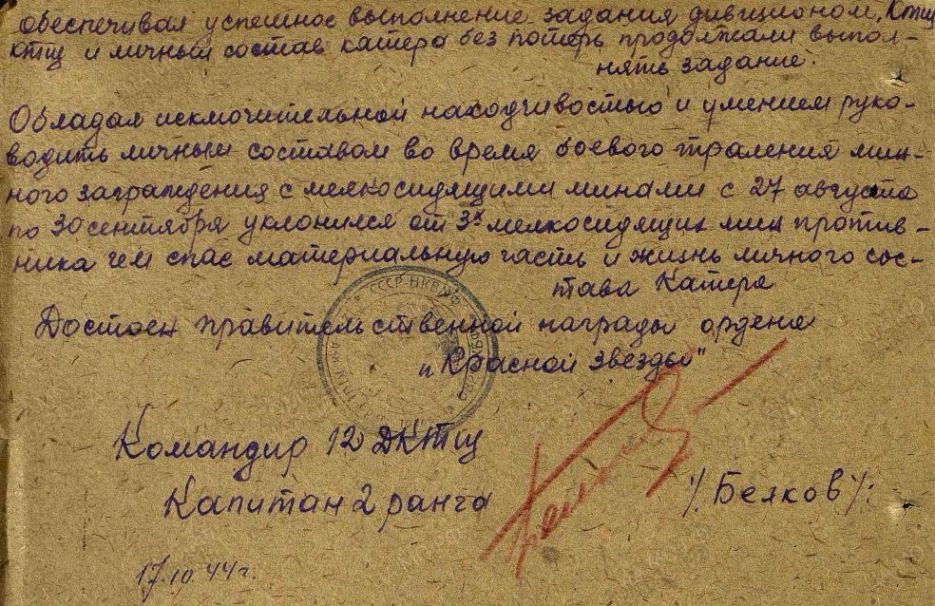 обеспечивая успешное выполнение задания дивизионом, Ктщ
Ктщ и личный состав катера без потерь продолжали выпол-
нять задание.
Обладая исключительной находчивостью и умением руко-
водить личным составом во время боевого траления мин-
ного заграждения с мелкосидящими минами с 27 августа
по 30 сентября уклонился от 3х мелкосидящих мин против-
ника чем спас материальную часть и жизнь личного сос-
тава Катера
Достоен правительственной награды ордена
„Красной звезды"
Командир 12 ДКТЩ
Капитан 2 ранга
/Белков/:
17.10.44г.
СССР НКВМФ